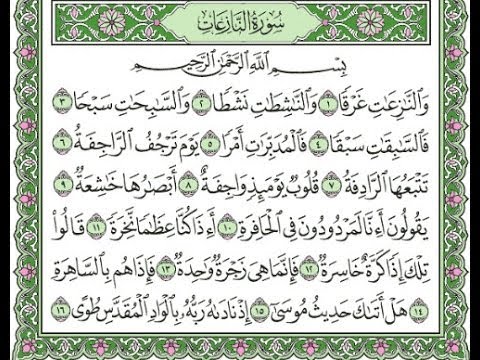 سُورَةُ النَّازِعَاتِ
بِسْمِ اللَّهِ الرَّحْمَٰنِ الرَّحِيمِ
وَالنَّازِعَاتِ غَرْقًا ١ وَالنَّاشِطَاتِ نَشْطًا ٢ وَالسَّابِحَاتِ سَبْحًا ٣
فَالسَّابِقَاتِ سَبْقًا ٤ فَالْمُدَبِّرَاتِ أَمْرًا ٥ يَوْمَ تَرْجُفُ الرَّاجِفَةُ ٦
تَتْبَعُهَا الرَّادِفَةُ ٧ قُلُوبٌ يَوْمَئِذٍ وَاجِفَةٌ ٨ أَبْصَارُهَا خَاشِعَةٌ ٩
يَقُولُونَ أَءِنَّا لَمَرْدُودُونَ فِي الْحَافِرَةِ ١٠ أَءِذَا كُنَّا عِظَامًا نَّخِرَةً ١١ قَالُوا
تِلْكَ إِذًا كَرَّةٌ خَاسِرَةٌ ١٢ فَإِنَّمَا هِيَ زَجْرَةٌ وَاحِدَةٌ ١٣ فَإِذَا هُم بِالسَّاهِرَةِ
١٤ هَلْ أَتَاكَ حَدِيثُ مُوسَىٰ ١٥ إِذْ نَادَاهُ رَبُّهُ بِالْوَادِ الْمُقَدَّسِ طُوًى ١٦